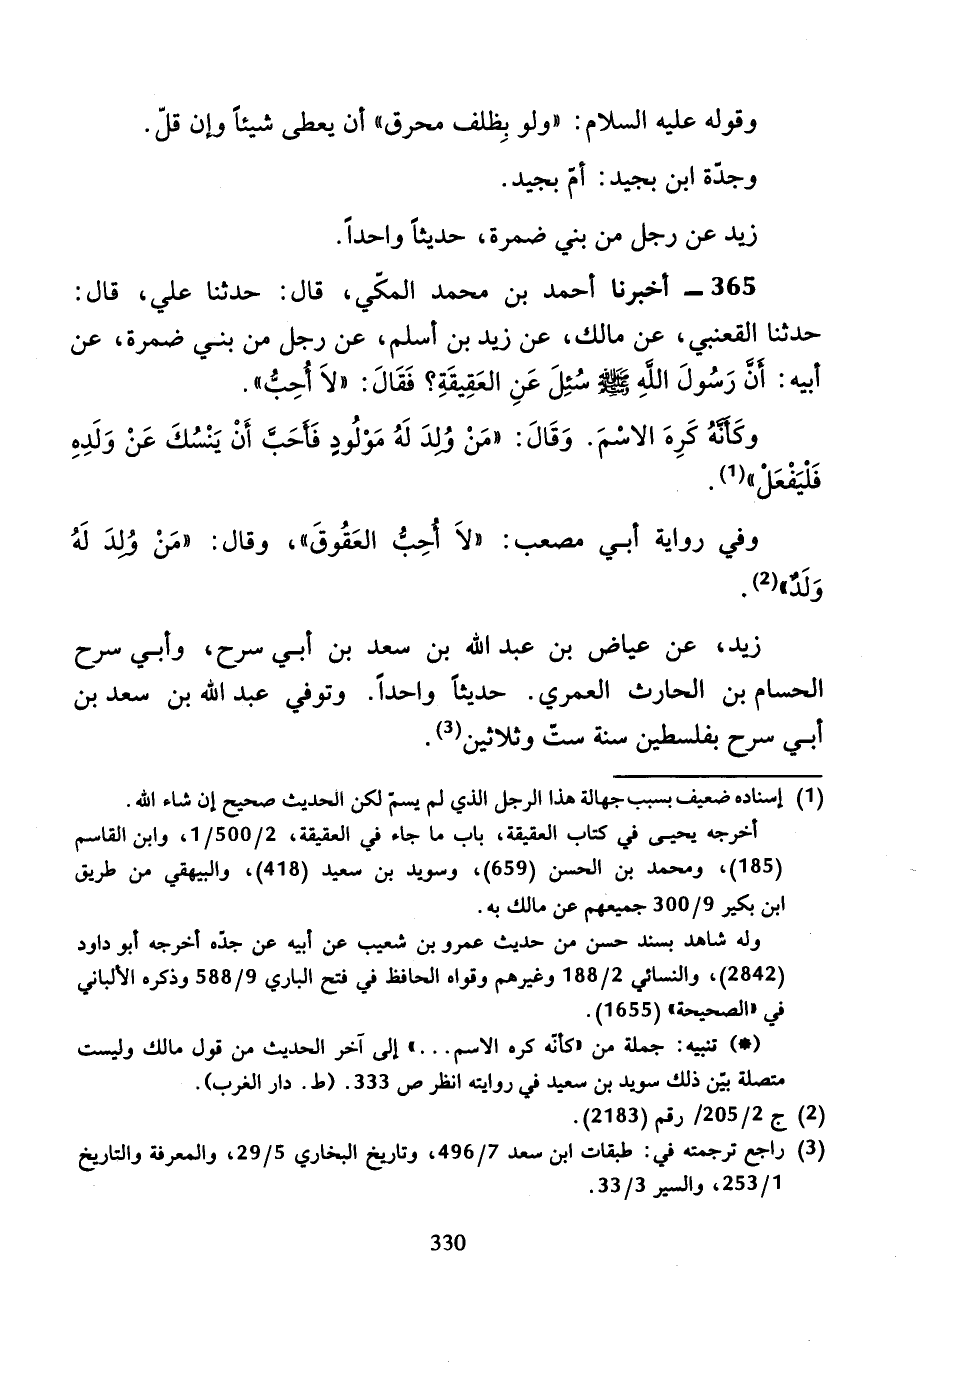 وقوله عليه السلام: «ولو بِظلف محرق» أن يعطى شيئاً وإن قلّ.
وجدّة ابن بجيد: أمّ بجيد.
زيد عن رجل من بني ضمرة، حديثاً واحداً.
365 ـ أخبرنا أحمد بن محمد المكّي، قال: حدثنا علي، قال:
حدثنا القعنبي، عن مالك، عن زيد بن أسلم، عن رجل من بني ضمرة، عن
أبيه: أَنَّ رَسُولَ اللَّهِ ﷺ سُئِلَ عَنِ العَقِيقَةِ؟ فَقَالَ: «لاَ أُحِبُّ».
وكَأَنَّهُ كَرِهَ الاسْمَ. وَقَالَ: «مَنْ وُلِدَ لَهُ مَوْلُودٍ فَأَحَبَّ أَنْ يَنْسُكَ عَنْ وَلَدِهِ
فَلْيَفْعَلْ»(1).
وفي رواية أبي مصعب: «لاَ أُحِبُّ العَقُوقَ»، وقال: «مَنْ وُلِدَ لَهُ
وَلَدٌ»(2).
زيد، عن عياض بن عبد الله بن سعد بن أبي سرح، وأبي سرح
الحسام بن الحارث العمري. حديثاً واحداً. وتوفي عبد الله بن سعد بن
أبي سرح بفلسطين سنة ستّ وثلاثين(3).
(1) إسناده ضعيف بسبب جهالة هذا الرجل الذي لم يسمّ لكن الحديث صحيح إن شاء الله.
أخرجه يحيى في كتاب العقيقة، باب ما جاء في العقيقة، 1/500/2، وابن القاسم
(185)، ومحمد بن الحسن (659)، وسويد بن سعيد (418)، والبيهقي من طريق
ابن بكير 300/9 جميعهم عن مالك به.
وله شاهد بسند حسن من حديث عمرو بن شعيب عن أبيه عن جدّه أخرجه أبو داود
(2842)، والنسائي 188/2 وغيرهم وقواه الحافظ في فتح الباري 588/9 وذكره الألباني
في «الصحيحة» (1655).
(*) تنبيه: جملة من «كأنّه كره الاسم...» إلى آخر الحديث من قول مالك وليست
متصلة بيّن ذلك سويد بن سعيد في روايته انظر ص 333. (ط. دار الغرب).
(2) ج 205/2/ رقم (2183).
(3) راجع ترجمته في: طبقات ابن سعد 496/7، وتاريخ البخاري 29/5، والمعرفة والتاريخ
253/1، والسير 33/3.
330